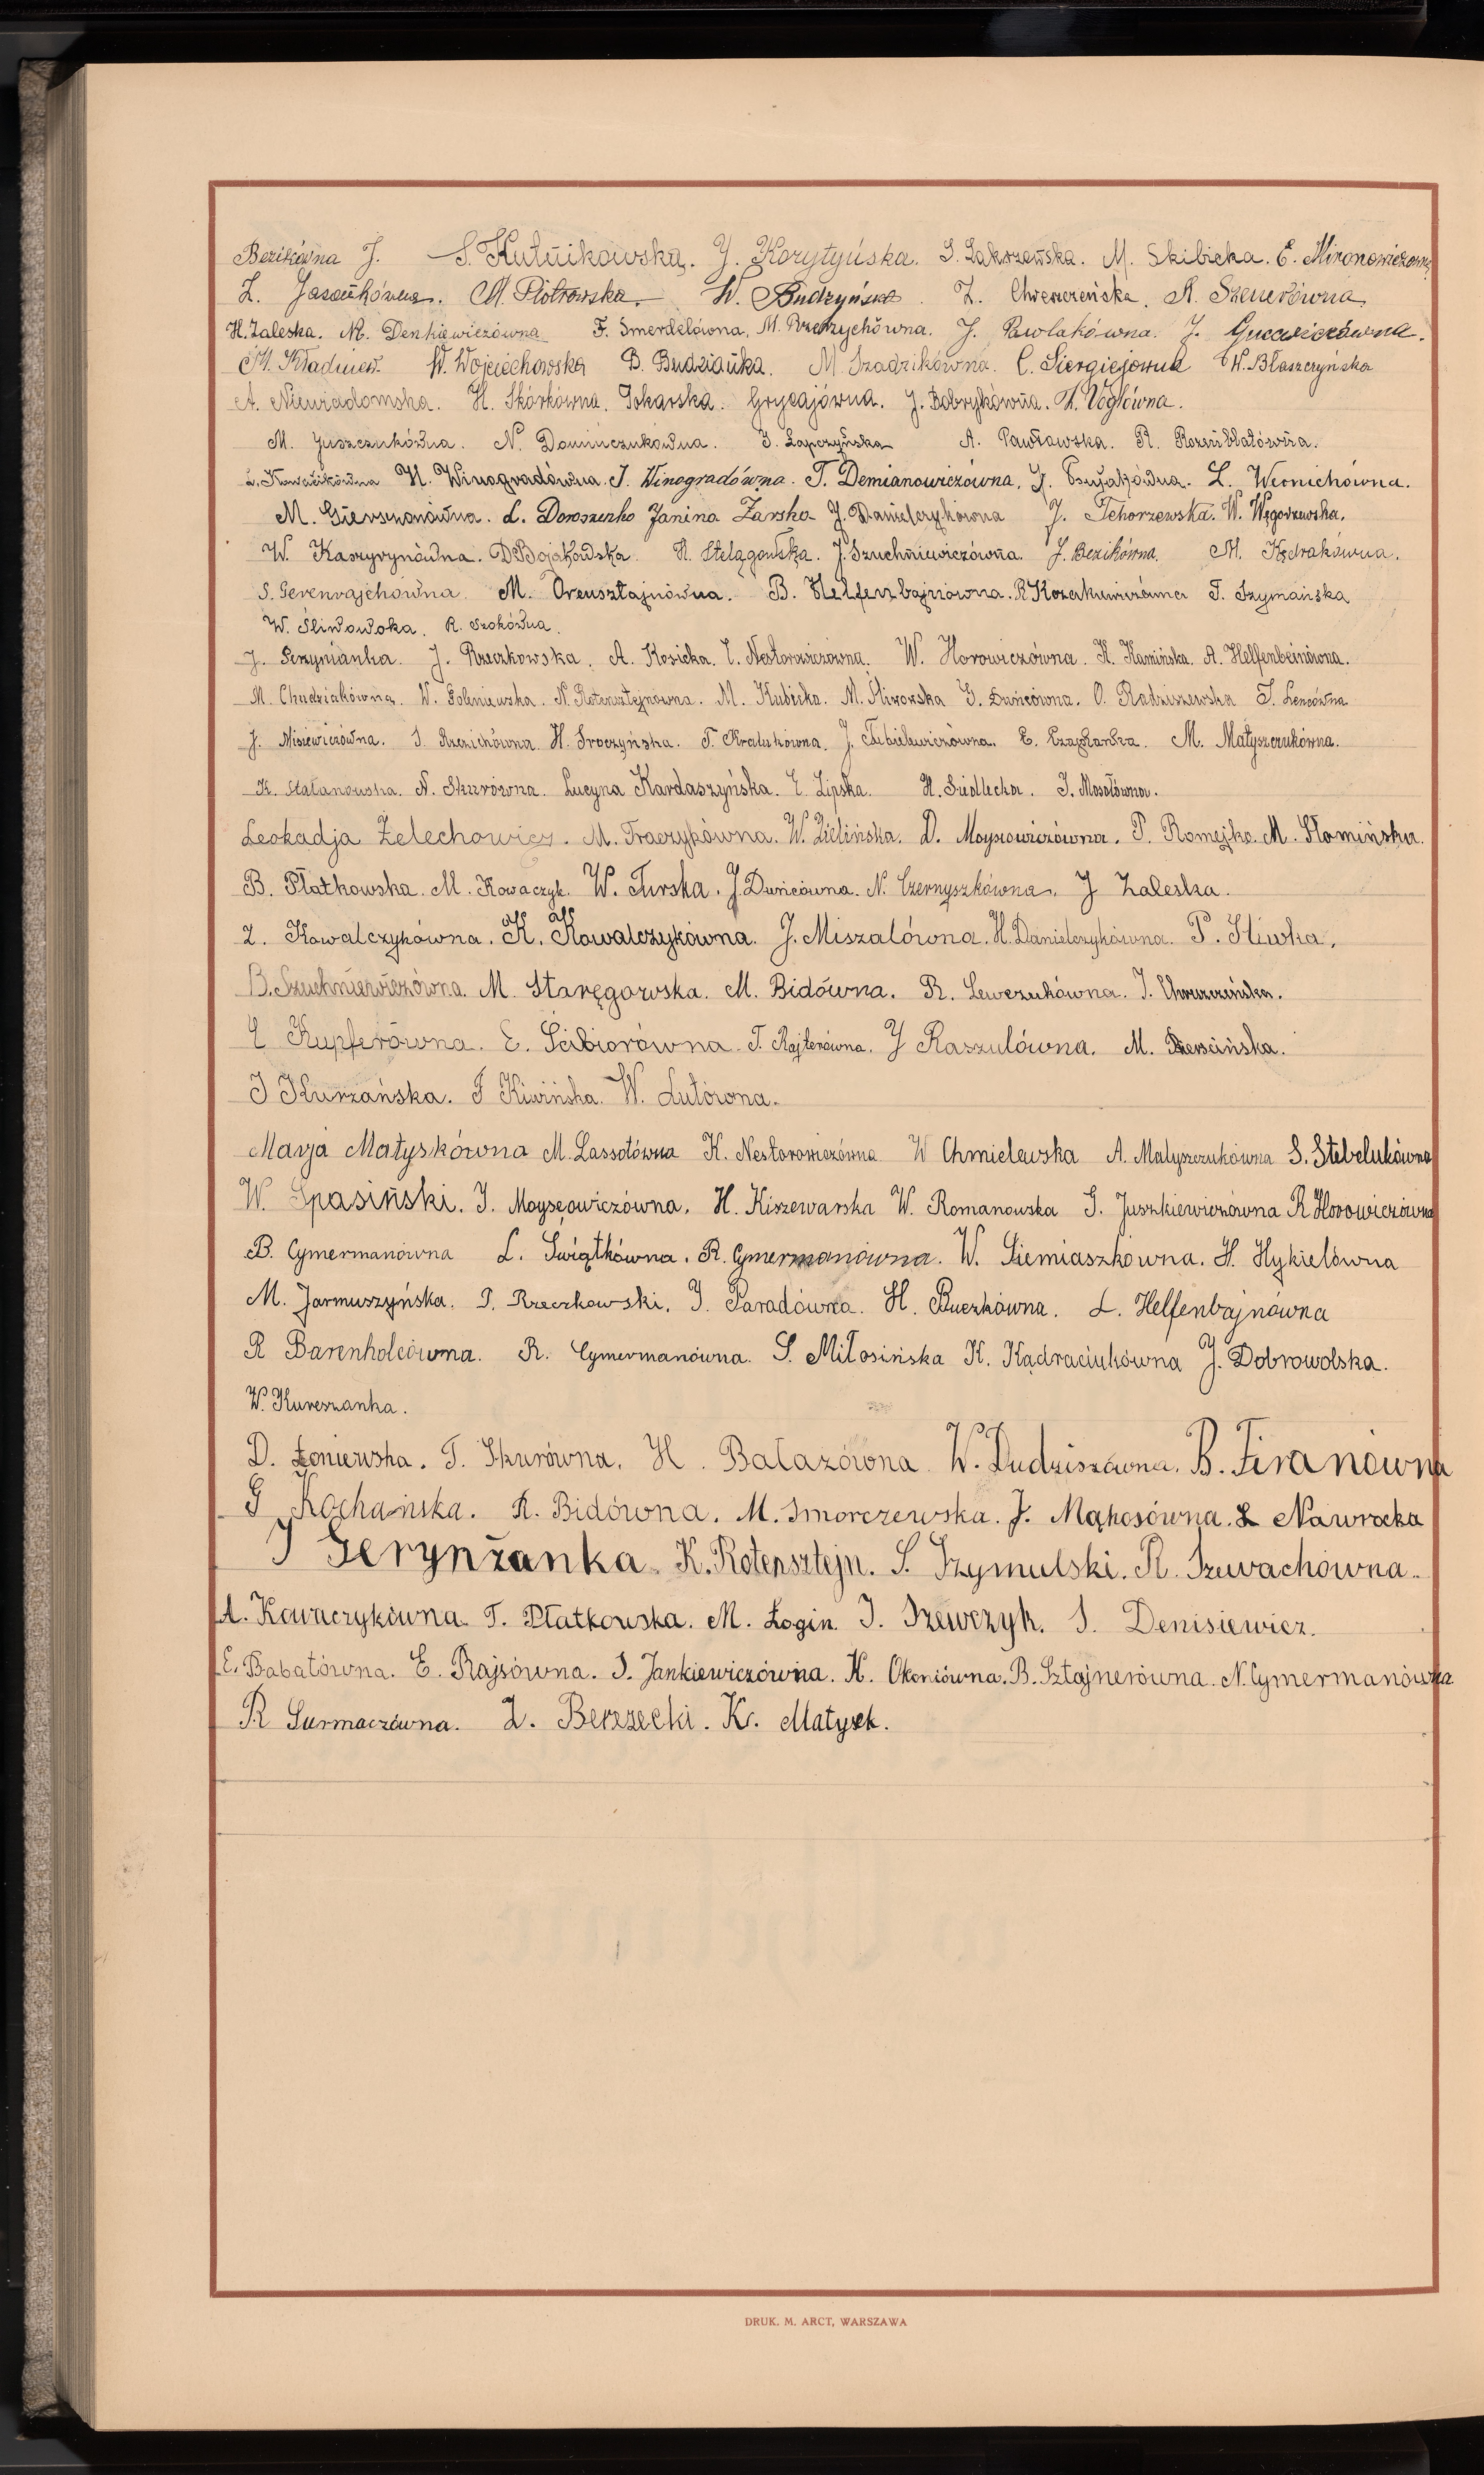 Bezikówna J. S. Kutnikowska. J. Korytyńska. S. Zakrzewska. M. Skibicka. E. Mironowiczówna
Z. Jasońkówna. M. Piotrowska. W. Budzyńska. Z. Chweszczeńska. R. Szenerówna
H. Zaleska. M. Denkiewiczówna F. Smerdelówna. M. Przedrzychówna. J. Pawlakówna. J. Gucewiczówna.
M. Kładniew. W. Wojciechowska B. Budzianka. M. Szadzikówna. C. Siergiejówna W. Błaszczyńska
A. Niewiadomska. H. Skórkówna. Tokarska. Grycajówna. J. Bobrykówna. H. Voglówna.
M. Juszczukówna. N. Dominczukówna. J. Łapczyńska A. Pawłowska. R. Rozenblatówna.
H. Winogradówna. J. Winogradówna. T. Demianowiczówna. L. Wernichówna.
M. Gierszonówna. L. Doroszenko Janina Żarska J. Danielczykówna J. Tchorzewska. W. Węgorzewska.
W. Kasryrynówna. D. Bojakowska. H. Stelągowska. J. Szuchniewiczówna. J. Bezikówna. M. Kędrakówna.
S. Gerenrajchówna. M. Orensztajnówna. B. Helfenbajnówna. R. Kozakiewiczówna T. Szymańska
W. Śliwowska. R. Szokówna.
J. Gerzynianka. J. Rzeczkowska. A. Kosicka. E. Nestorowiczówna. W. Horowiczówna. K. Kamińska. A. Helfenbeinówna.
M. Chudziakówna. W. Goleniewska. N. Rotensztejnówna. M. Kubicka. M. Śliwowska G. Duńcówna. O. Radziszewska S. Lencówna
J. Misiewiczówna. S. Rzezichówna. H. Sroczyńska. T. Kredukówna. J. Tubielewiczówna. E. Czaplańska. M. Matyszczukówna.
K. Stalanowska. N. Skurówna. Lucyna Kardaszyńska. E. Lipska. H. Siedlecka. J. Mosołówna.
Leokadja Żelechowicz. M. Traczykówna. W. Zielińska. D. Moysowiczówna. P. Romejko. M. Słomińska.
B. Płatkowska. M. Kowaczyk. W. Turska. J. Duńcówna. N. Czernyszkówna. J Zaleska.
Z. Kowalczykówna. K. Kowalczykówna. J. Miszalówna. H. Danielczykówna. P. Śliwka.
B. Szuchniewiczówna. M. Staręgowska. M. Bidówna. R. Lewczukówna. J. Chweszczeńska.
E Kupferówna. E. Ścibiorówna. T. Rajterówna. J Raszulówna. M. Dzerścińska.
J Kurzańska. F Kiwińska. W. Lutówna.
Marja Matyskówna M. Lassotówna K. Nestorowiczówna W Chmielewska A. Matyszczukówna S. Stebelukówna
W. Spasiński. J. Moysęowiczówna. H. Kiszewarska W. Romanowska J. Juszkiewiczówna R Horowiczówna
B. Cymermanówna L. Świątkówna. R. Cymermanówna. W. Siemiaszkówna. H. Hykielówna
M. Jarmuszyńska. T. Rzeczkowski. J. Paradówna. H. Buczkówna. L. Helfenbajnówna
R Barenholcówna. R. Cymermanówna. S. Miłosińska K. Kądraciukówna J. Dobrowolska.
W. Kureszanka.
D. Łoniewska. T. Skurówna. H. Bałazówna W. Dudziszówna. B. Firanówna
G Kochańska. R. Bidówna. M. Smorczewska. J. Mąkosówna. L Nawrocka
J Gerynżanka. K. Rotensztejn. S. Szymulski. R. Szwachówna.
A. Kowaczykówna. T. Płatkowska. M. Łogin. J. Szewczyk. S. Denisiewicz.
E. Babatówna. E. Rajsówna. J. Jankiewiczówna. K. Okoniówna. B. Sztajnerówna. N. Cymermanówna
R Surmaczówna. Z. Berezecki. K. Matysek.
DRUK. M. ARCT, WARSZAWA